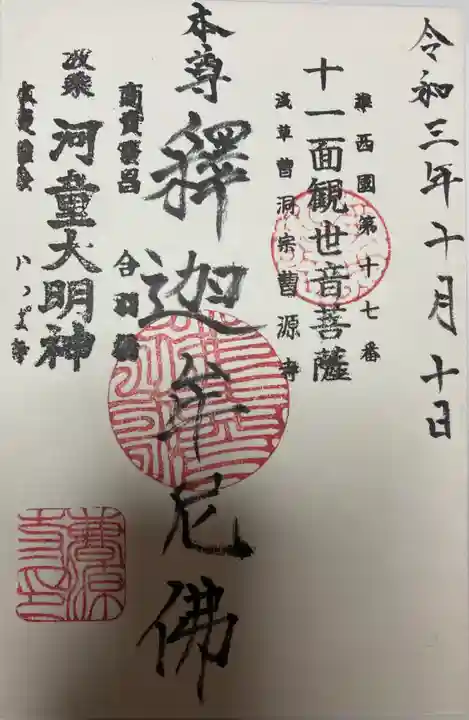 令和三年十月十日
準西國第十七番
十一面観世音菩薩
浅草曹洞宗曹源寺
本尊 釋迦牟尼佛
商賣繁昌
河童大明神
かっぱ寺
曹源寺印